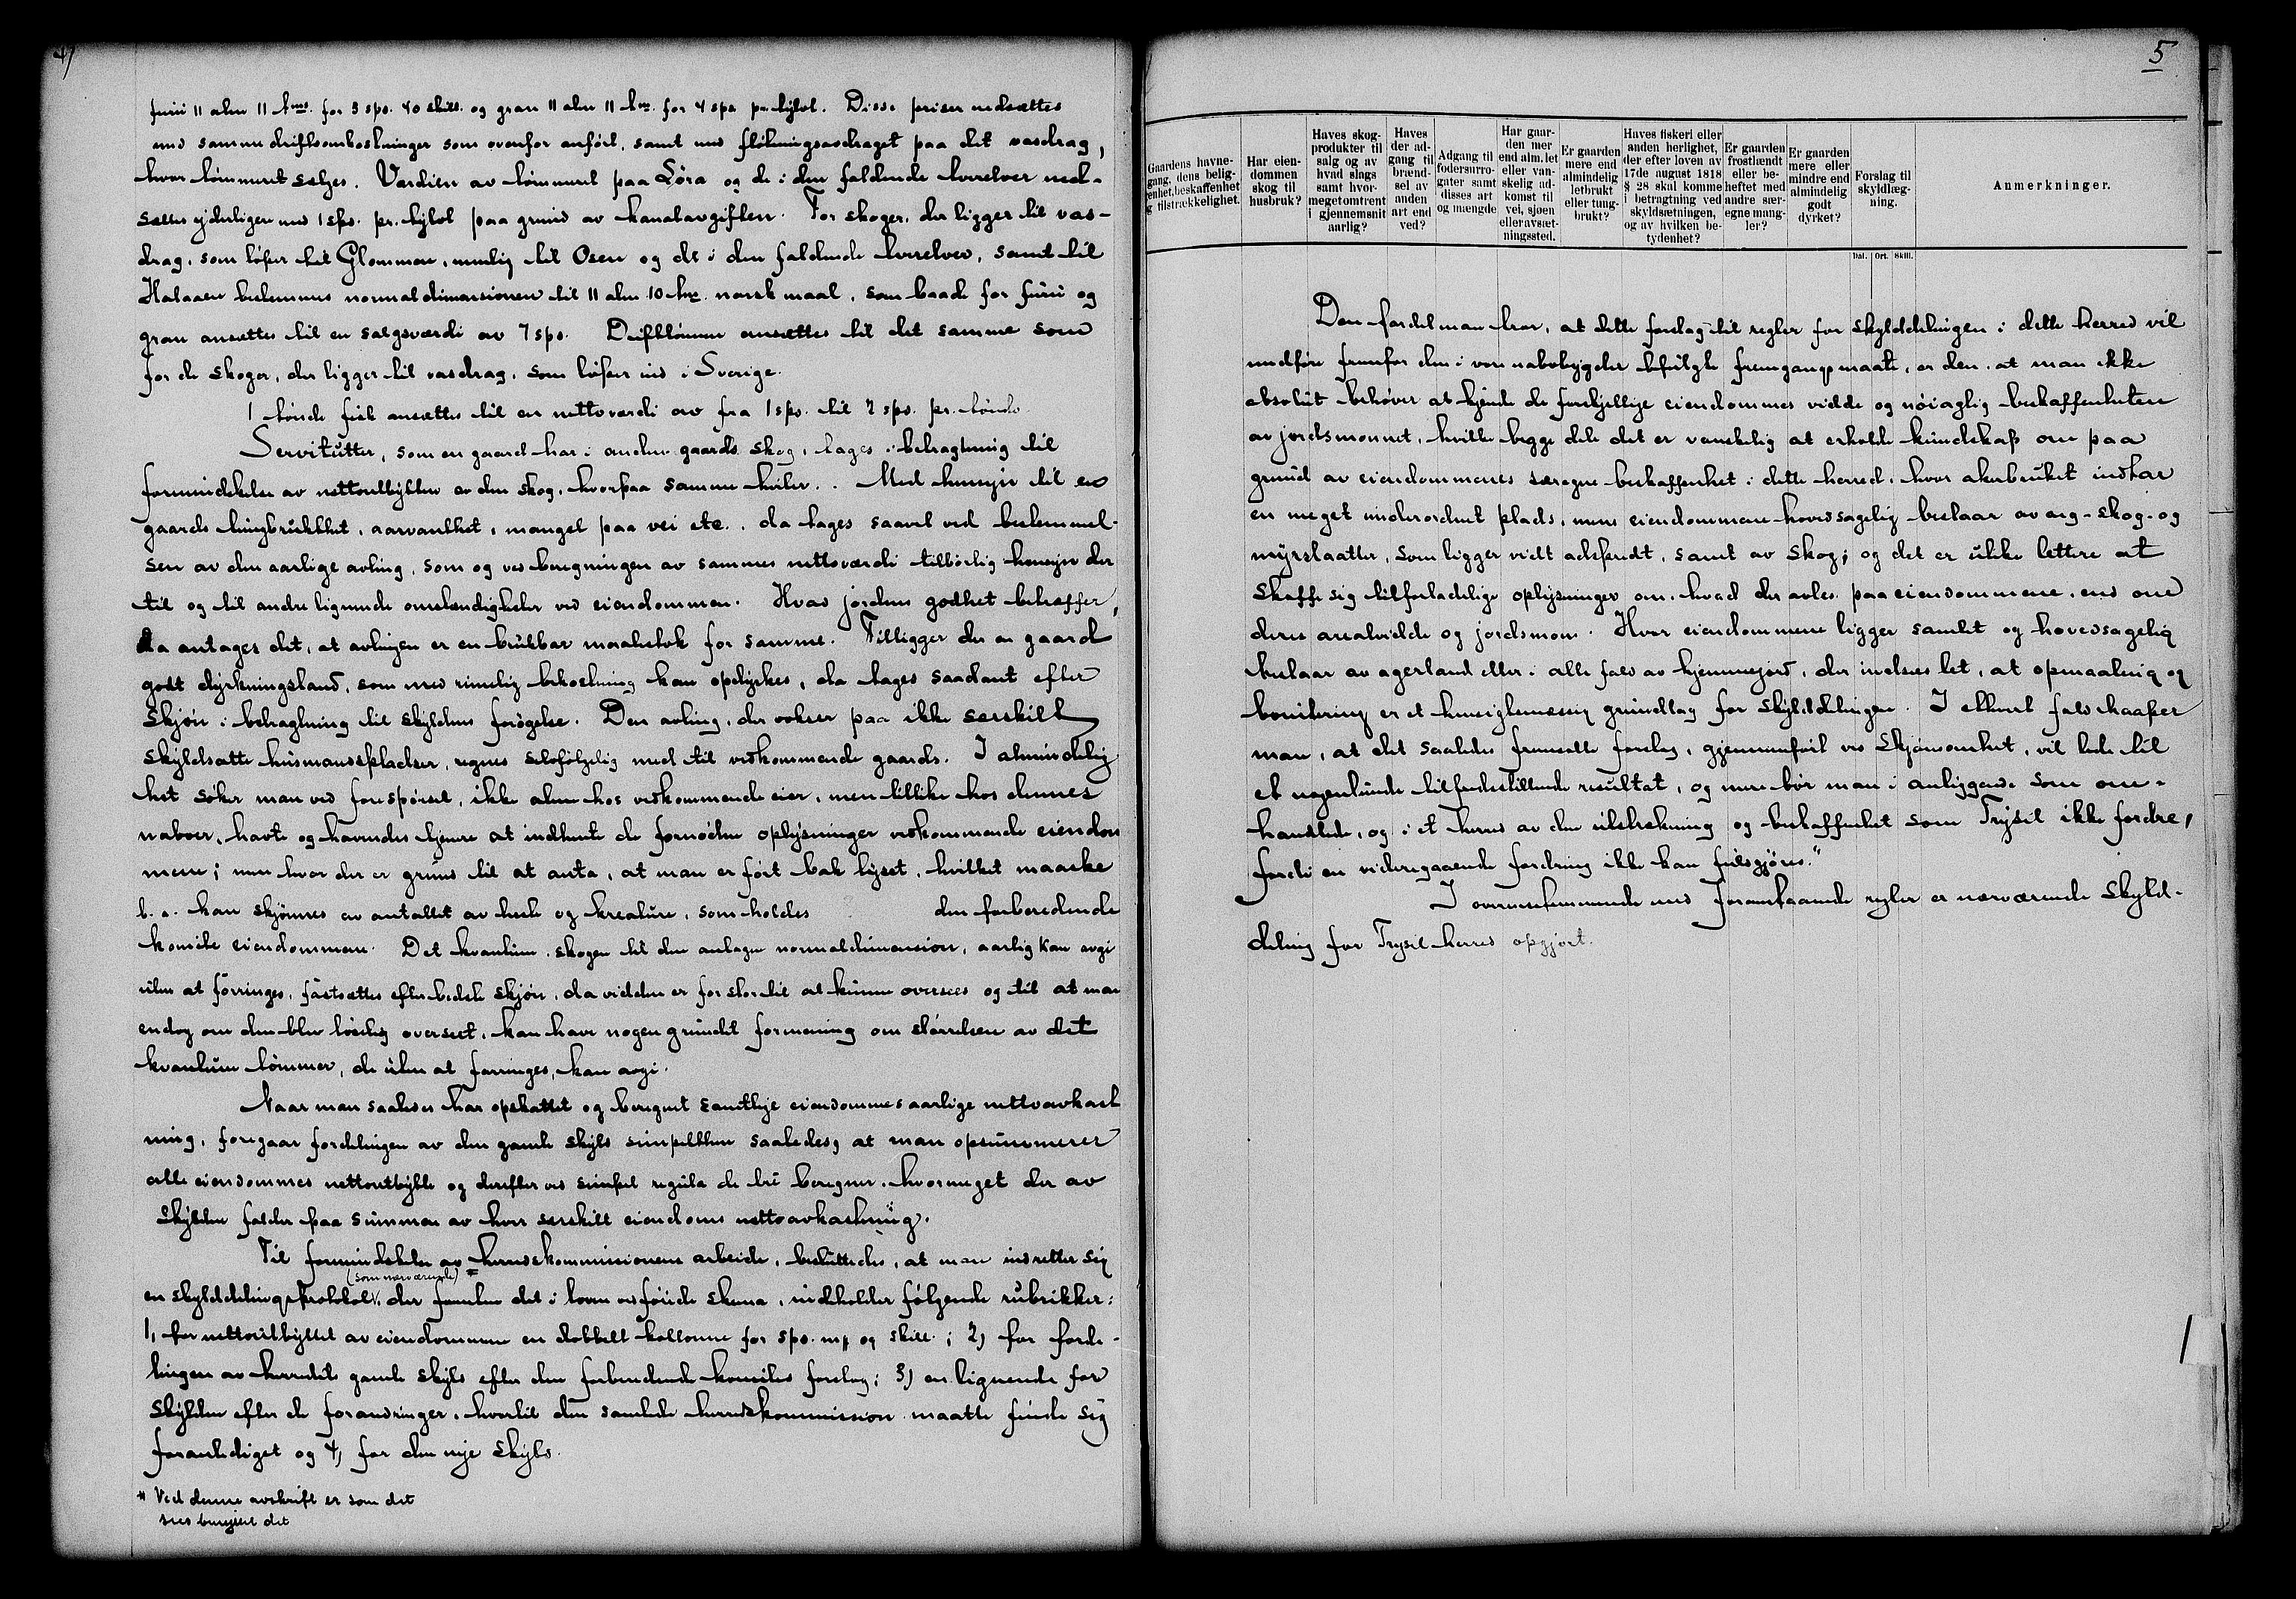 4)
furu 11 alen 11 tms. for 5 spd. 40 skill. og gran 11 alen 11 tm. for 4 spd. pr. tylvt. Disse priser nedsættes
med samme driftsomkostninger som ovenfor anført, samt med fløtningsavdraget paa det vasdrag,
hvor tømmeret sælges. Værdien av tømmeret paa Løra og de i den faldende tverelver ned-
sættes yderligere med 1 spd. pr. tylvt paa grund av kanalavgiften. For skoger, der ligger til vas-
drag, som løper til Glommen, nemlig til Osen og de i den faldende tverelver, samt til
Halaaen bestemmes normaldimensionen til 11 alen 10 tm. norsk maal, som baade for furu og
gran ansættes til en salgsværdi av 7 spd. Drifttømmer ansættes til det samme som
for de skoger, der ligger til vasdrag, som løper ind i Sverige.
1 tønde fisk ansættes til en nettoværdi av fra 1 spd. til 2 spd. pr. tønde.
Servitutter, som en gaard har i anden gaards skog, tages i betragtning til
formindskelse av nettoutbyttet av den skog, hvorpaa samme hviler. Med hensyn til en
gaards tungbrukthet, aarvanthet, mangel paa vei etc., da tages saavel ved bestemmel-
sen av den aarlige avling, som og ved beregningen av sammes nettoværdi tilbørlig hensyn der
til og til andre lignende omstændigheter ved eiendommen. Hvad jordens godhet betræffer,
da antages det, at avlingen er en brukbar maalestok for samme. Tilligger der en gaard
godt dyrkningsland, som med rimelig bekostning kan opdyrkes, da tages saadant efter
skjøn i betragtning til skyldens forøgelse. Den avling, der vokser paa ikke særskilt
skyldsatte husmandspladser, regnes selvfølgelig med til vedkommende gaards. I almindelig
het søker man ved forespørsel, ikke alene hos vedkommende eier, men tillike hos dennes
naboer, havte og havendes tjenere at indhente de fornødne oplysninger vedkommende eiendom
mene; men hvor der er grund til at anta, at man er ført bak lyset, hvilket maaske
b. a. kan skjønnes av antallet av heste og kreature, som holdes den forberedende
komite eiendommen. Det kvantum, skogen til den antagne normaldimension, aarlig kan avgi
uten at forringes, fastsættes efter bedste skjøn, da vidden er for stor til at kunne oversees og til at man
endog om den blev løselig overseet, kan have nogen grundet formening om størrelsen av det
kvantum tømmer, de uten at forringes, kan avgi.
Naar man saaledes har opskattet og beregnet samtlige eiendommes aarlige nettoavkast
ning, foregaar fordelingen av den gamle skyld simpelthen saaledes, at man opsummerer
alle eiendommes nettoutbytte og derefter ved simpel regula de tri beregner, hvormeget der av
skylden falder paa summen av hver særskilt eiendoms nettoavkastning.
Til formindskelse av herredskommissionens arbeide, besluttedes, at man indretter sig
(som nærværende) *
en skylddelingsprotokol, der foruten det i loven anførte skema, indeholder følgende rubrikker:
1, for nettoutbyttet av eiendommene en dobbelt kollonne for spd. mk og skill.; 2) for forde-
lingen av herredets gamle skyld efter den forberedende komites forslag; 3) en lignende for
skylden efter de forandringer, hvortil den samlede herredskommission maatte finde sig
foranlediget og 4, for den nye skyld.
* Ved denne avskrift er som det
sees benyttet det
5
Gaardens havne-
gang, dens belig-
enhet, beskaffenhet
g tilstrækkelighet.
Har eien-
dommen
skog til
husbruk?
Haves skog-
produkter til
salg og av
hvad slags
samt hvor-
meget omtrent
i gjennemsnit
aarlig?
Haves
der ad-
gang til
brænd-
sel av
anden
art end
ved?
Adgang til
fodersurro-
gater samt
disses art
og mængde
Har gaar-
den mer
end alm. let
eller van-
skelig ad-
komst til
vei, sjøen
eller avsæt-
ningssted.
Er gaarden
mere end
almindelig
letbrukt
eller tung-
brukt?
Haves fiskeri eller
anden herlighet,
der efter loven av
17de august 1818
§ 28 skal komme
i betragtning ved
skyldsætningen,
og av hvilken be-
tydenhet?
Er gaarden
frostlændt
eller be-
heftet med
andre sær-
egne mang-
ler?
Er gaarden
mere eller
mindre end
almindelig
godt
dyrket?
Forslag til
skyldlæg-
ning.
Anmerkninger.
Dal. Ort. Skill.
Den fordel man tror, at dette forslag til regler for skylddelingen i dette herred vil
medføre fremfor den i vore nabobygder befulgte fremgangsmaate, er den, at man ikke
absolut behøver at kjende de forskjellige eiendommes vidde og nøiagtig beskaffenheten
av jordsmonnet, hvilke begge dele det er vanskelig at erholde kundskap om paa
grund av eiendommenes særegne beskaffenhet i dette herred, hvor akerbruket indtar
en meget underordnet plads, mens eiendommene hovedsagelig bestaar av eng-skog-og
myrslaatter, som ligger vidt adspredt, samt av skog; og det er ulike lettere at
skaffe sig tilforladelige oplysninger om, hvad der avles paa eiendommene, end om
deres arealvidde og jordsmon. Hvor eiendommene ligger samlet og hovedsagelig
bestaar av agerland eller i alle fald av hjemmejord, der indsees let, at opmaaling og
bonitering er et hensigtsmæssig grundlag for skylddelingen. I ethvert fald haaper
man, at det saaledes fremsatte forslag, gjennemført ved skjønsomhet, vil lede til
et nogenlunde tilfredsstillende resultat, og mere bør man i anliggende som om-
handlede, og i et herred av den utstrækning og beskaffenhet som Trysil ikke fordre,
fordi en videregaaende fordring ikke kan fuldgjøres."
I overensstemmende med foranstaaende regler er nærværende skyld-
deling for Trysil herred opgjort.